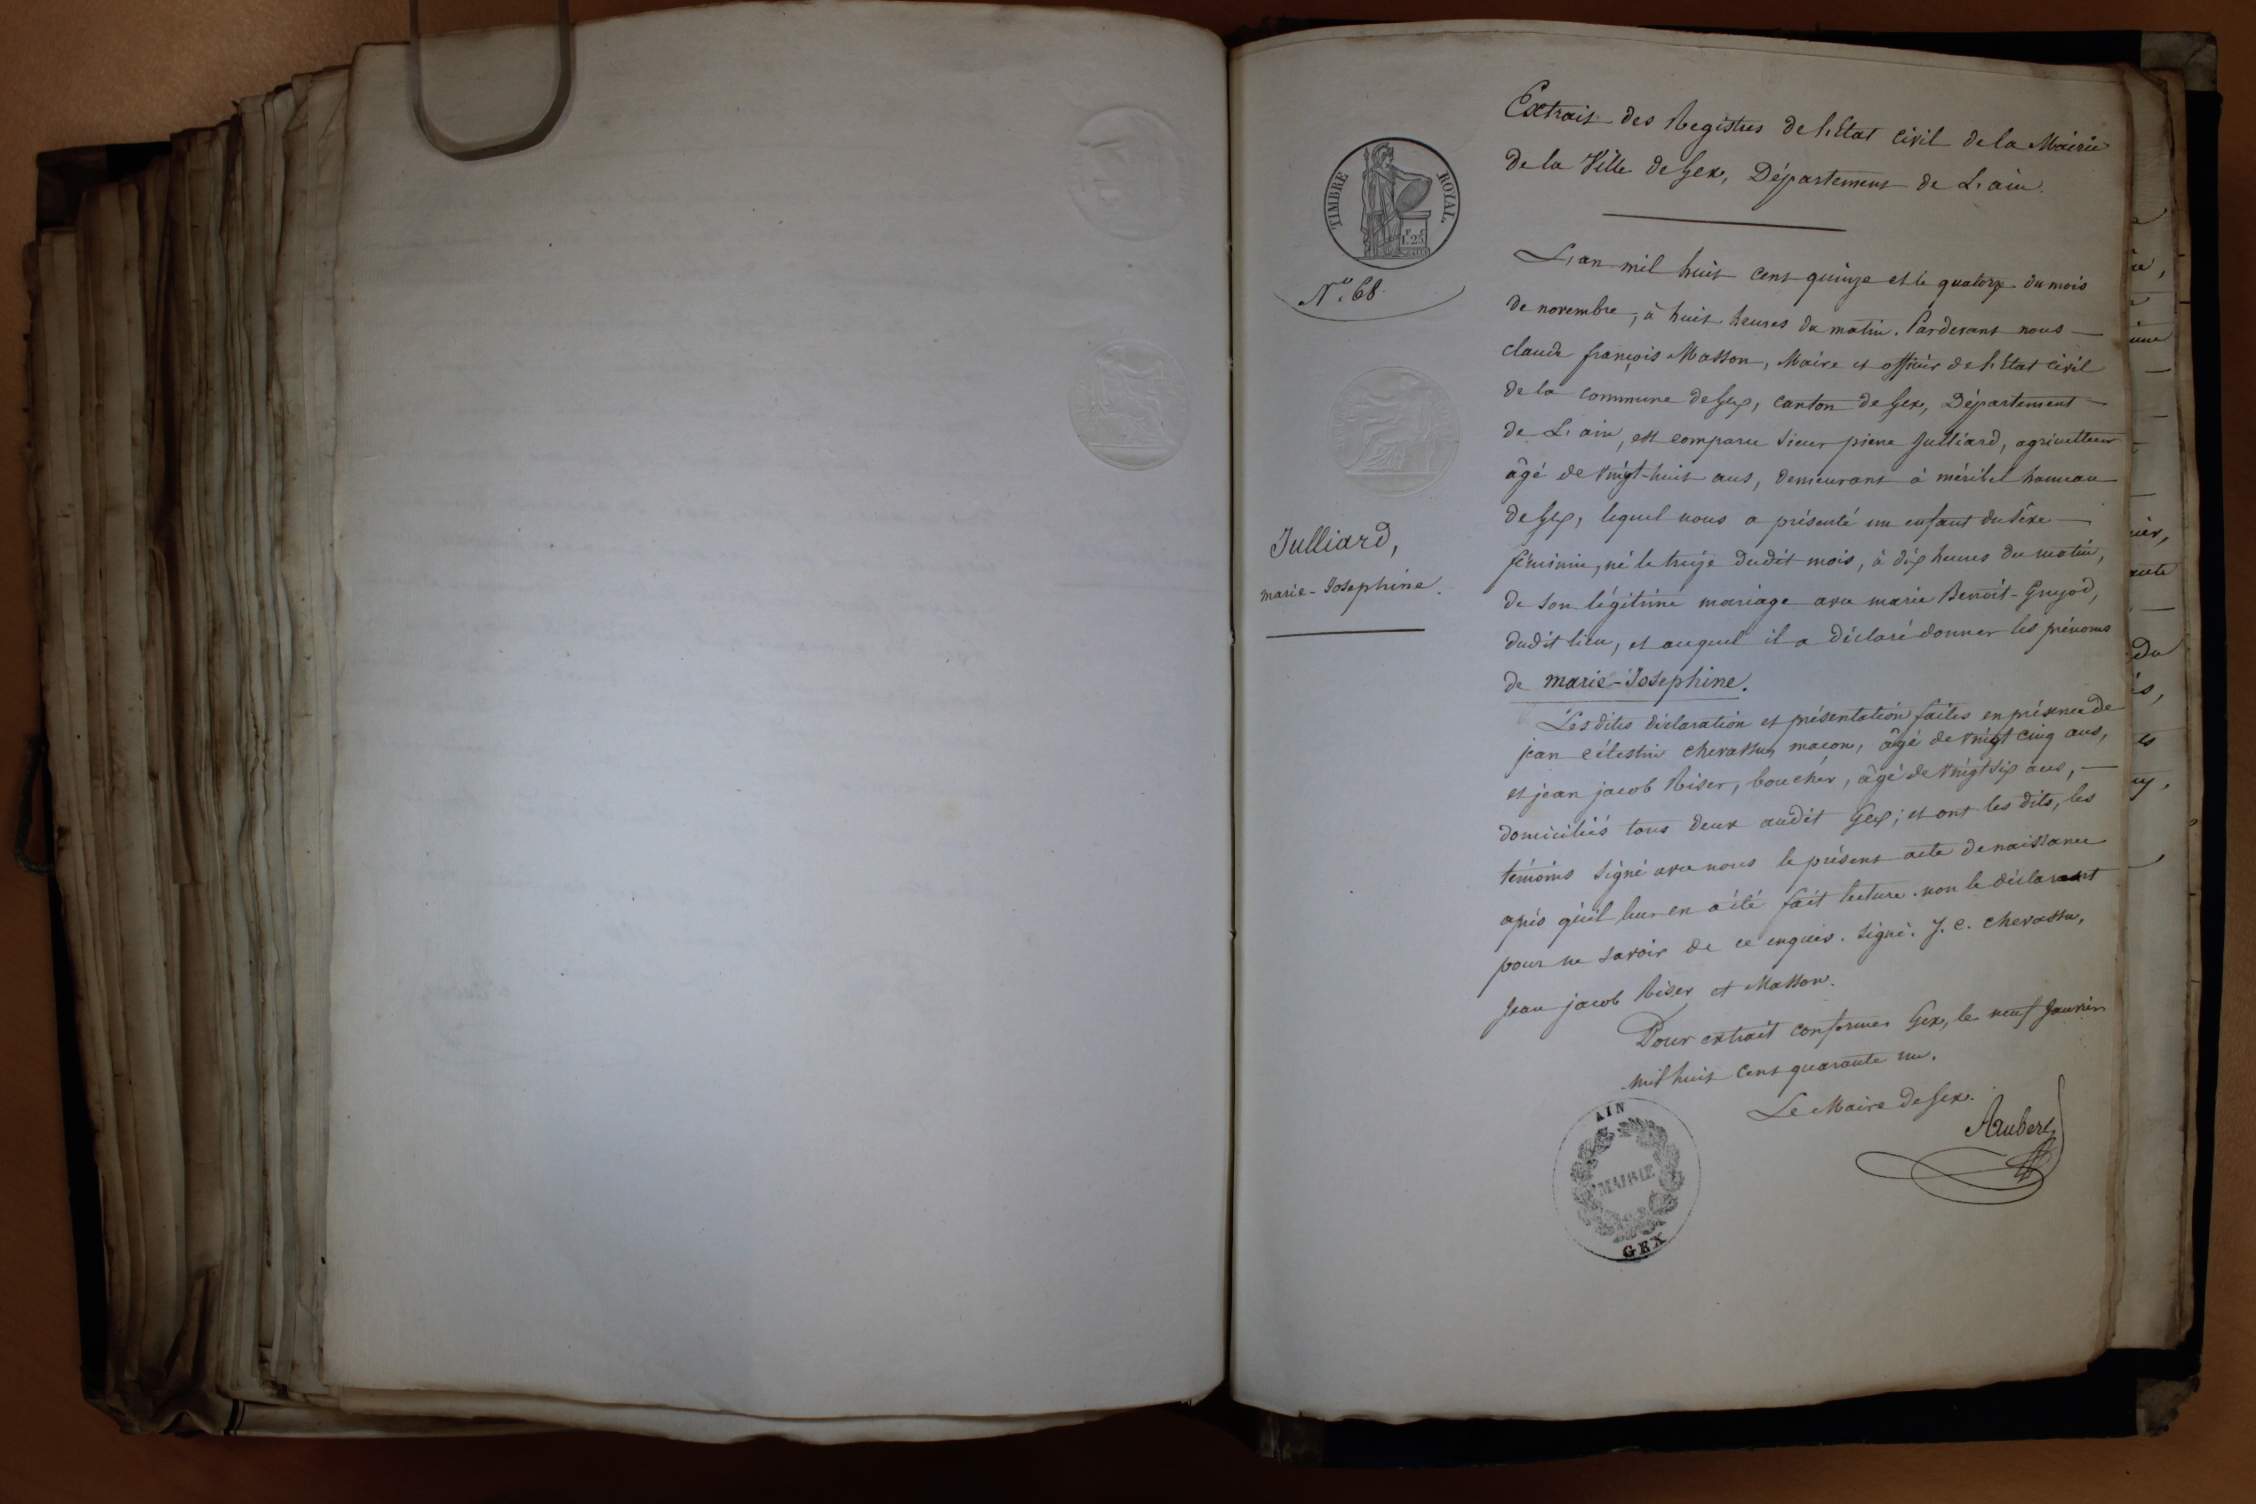 Extrait des Registres de l'Etat civil de la Mairie
de la Ville de Gex, Département de L'ain.
TIMBRE ROYAL
1.25
N.º 68.
L'an mil huit cent quinze et le quatorze du mois
de novembre, à huit heures du matin. Pardevant nous
claude françois Masson, Maire et officier de l'Etat civil
de la commune de Gex, canton de Gex, Département
de L'ain, est comparu Sieur pierre Julliard, agriculteur
âgé de vingt-huit ans, demeurant à méribel hameau
de Gex, lequel nous a présenté un enfant du sexe
féminin, né le treize dudit mois, à dix heures du matin,
de son légitime mariage avec marie Benoît-Guyod,
dudit lieu, et auquel il a déclaré donner les prénoms
de marie-Josephine.
Julliard,
marie-Josephine.
Les dites déclaration et présentation faites en présence de
jean célestin chevassu, macon, âgé de vingt cinq ans,
et jean jacob Riser, boucher, âgé de vingt six ans,
domiciliés tous deux audit Gex; et ont les dits, les
témoins signé avec nous le présent acte de naissance
après qu'il leur en a été fait lecture. non le déclarant
pour ne savoir de ce enquis. signé. J. C. chevassu,
Jean jacob Riser et Masson.
Pour extrait conforme. Gex, le neuf Janvier
mil huit cent quarante un.
Le Maire de Gex.
Aubert
AIN
MAIRIE
GEX